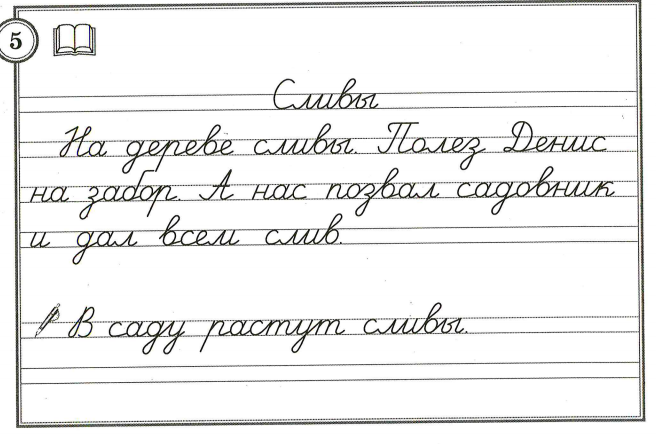 5
Сливы
На дереве сливы. Полез Денис
на забор. А нас позвал садовник
и дал всем слив.
В саду растут сливы.